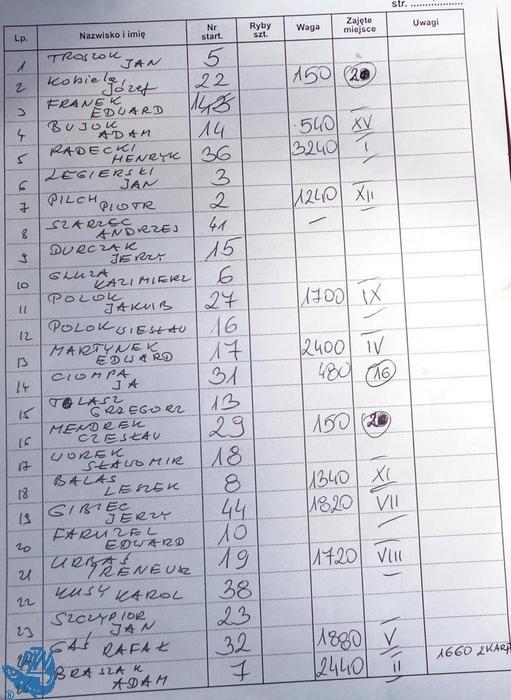 str. ..................
Lp. Nazwisko i imię Nr start. Ryby szt. Waga Zajęte miejsce Uwagi
1 TROSZOK JAN 5
2 Kobiela, Józef 22 150 20
3 FRANEK EDUARD
4 BUJOK ADAM 14 540 XV
5 RADECKI HENRYK 36 3240 I
6 LEGIERSKI JAN 3
7 PILCH PIOTR 2 1240 XII
8 SZARZEC ANDRZEJ 41 –
9 DURCZAK JERZY 15
10 GLUZA KAZIMIERZ 6
11 POLOK JAKUB 27 1700 IX
12 POLOK WIESŁAW 16
13 MARTYNEK EDWARD 17 2400 IV
14 CIOMPA JA 31 480 16
15 TOLASZ GRZEGORZ 13
16 MENDREK CZESŁAW 29 150 20
17 WOREK SŁAWOMIR 18
18 BALAS LESZEK 8 1340 XI
19 GIBIEC JERZY 44 1820 VII
20 FARUZEL EDWARD 10
21 URBAŚ IRENEUSZ 19 1720 VIII
22 KUSY KAROL 38
23 SZCZYPIOR JAN 23
GAŚ RAFAŁ 32 1880 V
BRASZAK ADAM 7 2440 II 1660 2KARP